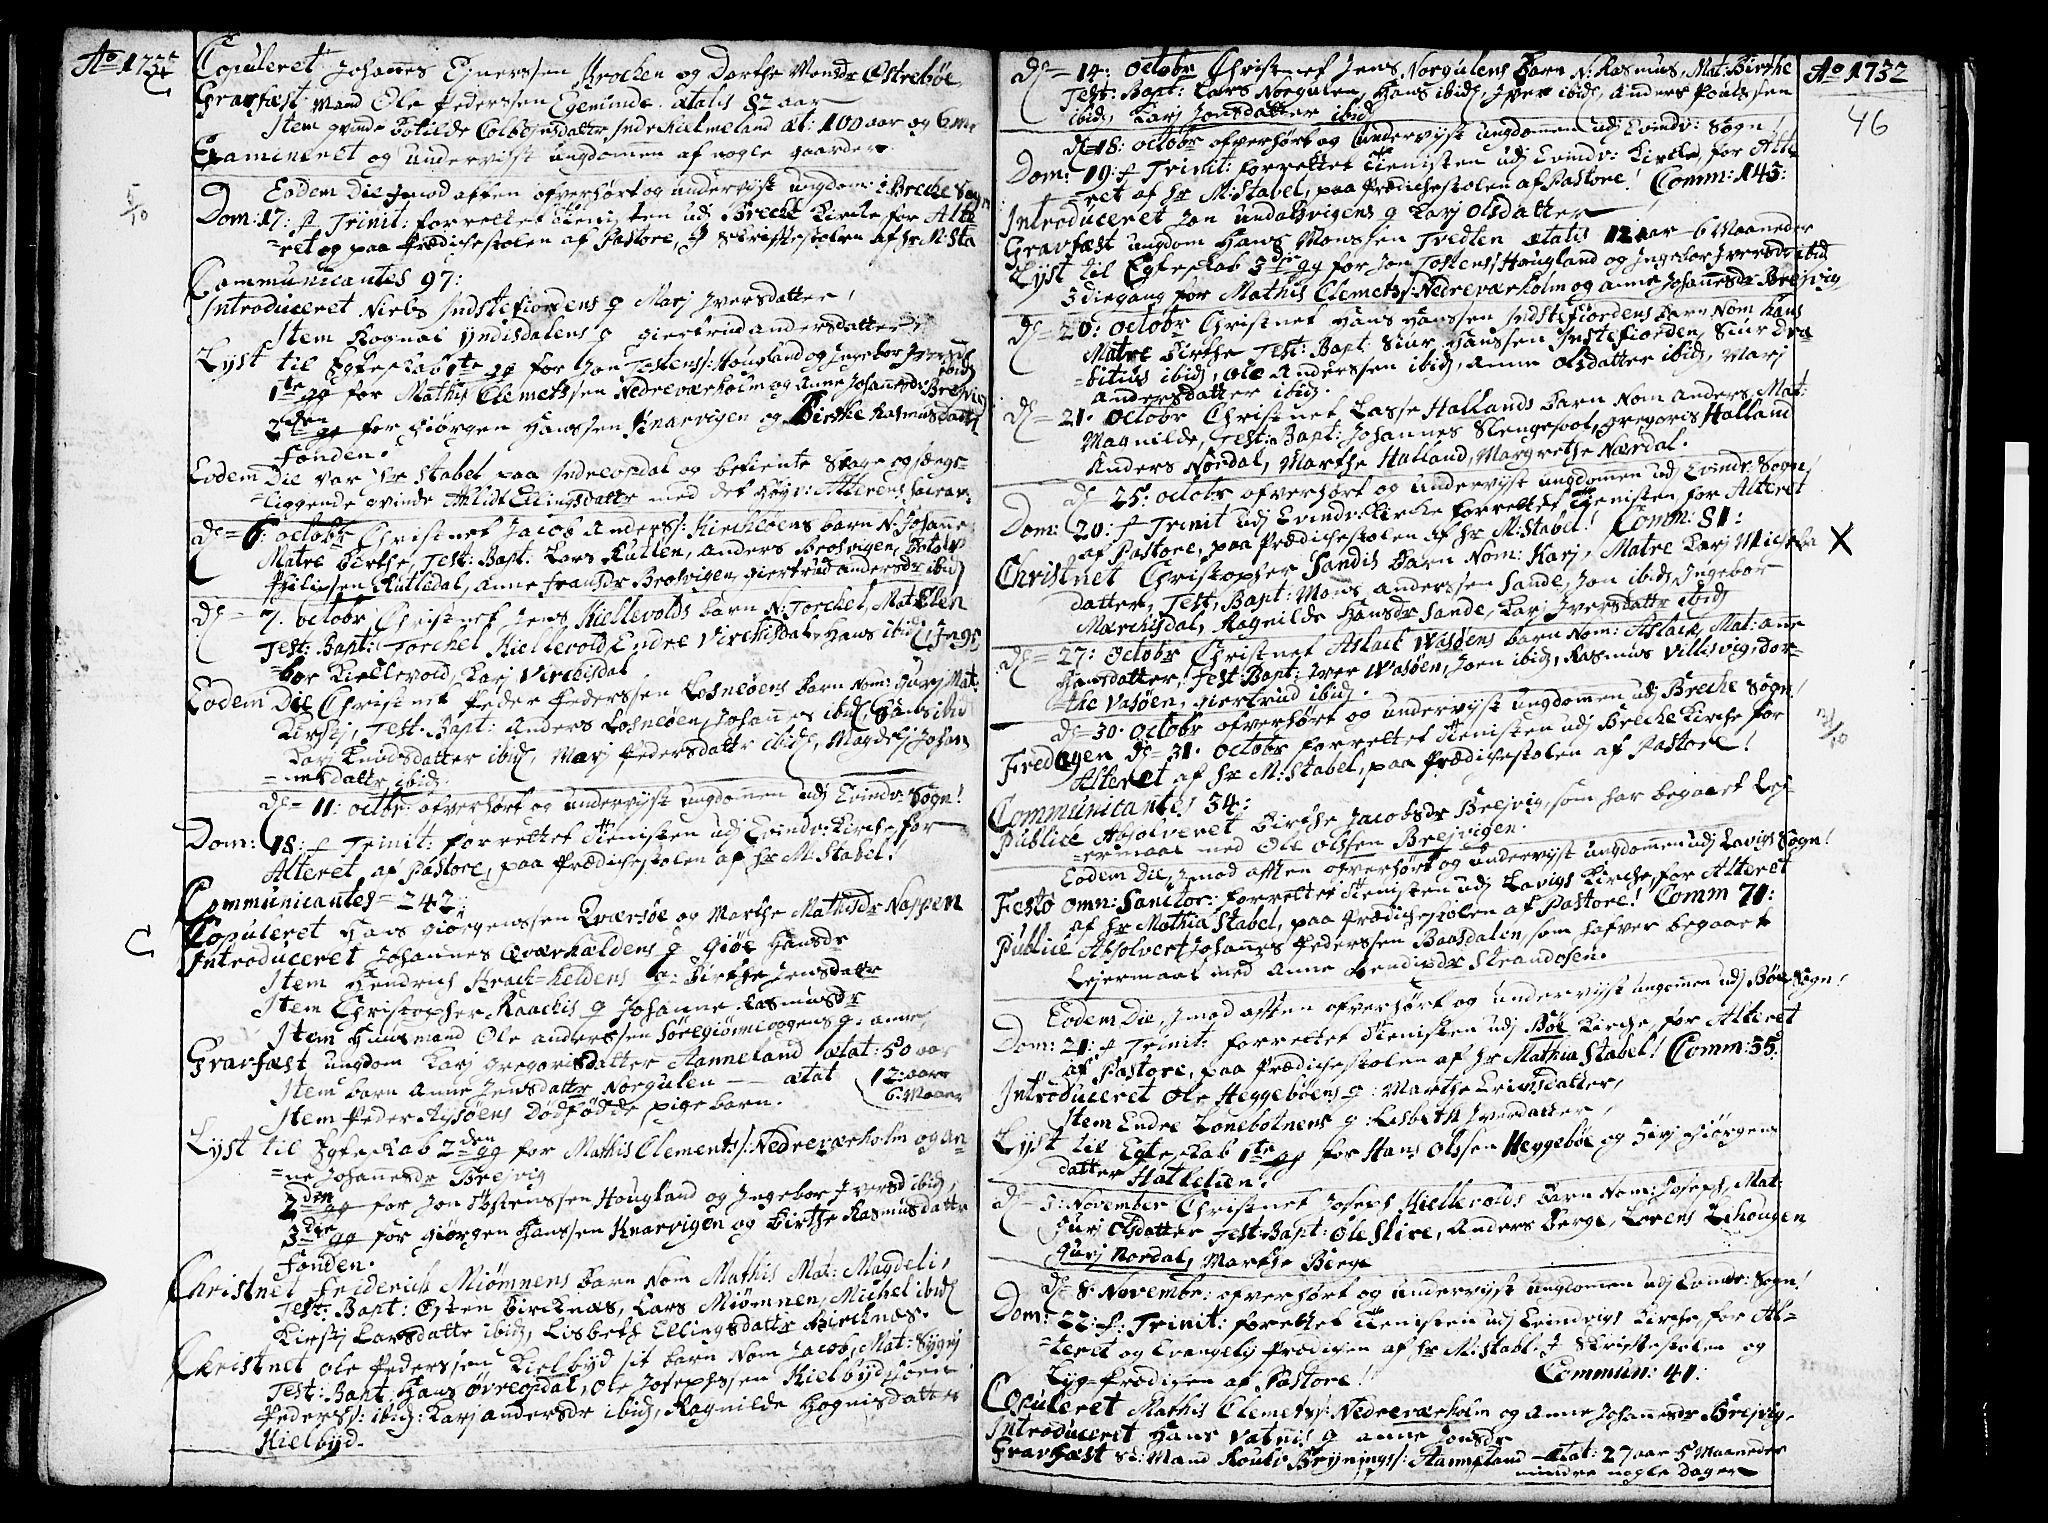 Ao 1732
Copuleret Johannes Ejnerssen Brochen og Dorthe Monsdr Østrebøe
Gravfæst Mand Ole Pederssen Egeminde. ætatis 82 aar
Item qvinde Botilde Colbejnsdattr Indre Kielmeland æt: 100 aar og 6 m
Examineret og underviist ungdommen af nogle gaarder
5/10
Eodem Die Imod aften ofverhørt og underviist ungdom: i Breche Sogn
Dom: 17: p Trinit: forrettet tienisten udj Breche Kirche for Alte
=ret og paa Prædichestolen af Pastore, J Skriftestolen af hr M: Sta
Communicantes 97:
Introduceret Niels Indstefiordens q Marj Iversdatter,
Item Rognal Yndisdalens q giertrud andersdatter,
Lyst til Egteskab 1te gg for Jon Tostens/: Hougland og Ingebor Iversdr ibid
1te gg for Mathis Clemetssen Nedreværholm og Anne Johannesdr Brejvig
2den gg for Giørgen Hanssen Knarvigen og Birthe Rasmusdattr
Fonden.
Eodem Die var hr Stabel paa Indreopdal og betiente Svage og sængs=
=liggende qvinde Ahlid Ellingsdattr med det høyv: Alterens sacrar.
d= 6: octobr Christnet Jacob Anderss: Kirchebøens barn N: Johanne
Matre Birthe, Test: Bapt: Lars Rutlen, anders Brosvigen, Botolv
Philipsen Rutledal, anne fransdr Brosvigen, giertrud andersdr ibid
d= 7. octobr Christnet Jens Kiellevolds barn N: Torchel, Mat Elen
Test: Bapt: Torchel Kiellevold, Endre Virchisdal, Hans ibid, Inge
=bor Kiellevold, Karj Virchisdal
Eodem Die Christnet Peder Pederssen Losneøens barn Nom: Gurj Mat.
Kirstj, Test: Bapt: Anders Losneøen, Johannes ibid, Hans ibid
Karj Knudsdatter ibid, Marj Pedersdattr ibid, Magdelj Johan
=nesdattr ibid.
d= 11: octbr: ofverhørt og underviist ungdommen udj Evindv: Sogn!
Dom: 18: p Trinit: forrettet tienisten udj Evindv: Kirche, for
Alteret af Pastore, paa Prædichestolen af hr M: Stabel!
Communicantes = 242.
C
Copuleret Hans giørgenssen Qværsøe og Marthe Mathisdr Nappen
Introduceret Johannes Qværhældens q Giøe Hansdr
Item Hendrich Brech=heldens q: Birthe Jensdattr
Item Christopher Raachis q Johanne Rasmusdr
Item Huusmand Ole anderssen Søregiønneoggens q: anne,
Gravfæst ungdom Karj gregorisdatter Hanneland ætat: 50 aar
Item barn Anne Jensdattr Norgulen -- ætat 12: aar
6: Maan
Item Peder Aysøens dødfødde pigebarn.
Lyst til Egteskab 2den gg for Mathis Clements/: Nedreværholm og An=
=ne Johannesdr Brejvig
2den gg for Jon Tostenssen Hougland og Ingebor Iversd ibid,
3die gg for Giørgen Hanssen Knarvigen og Birthe Rasmusdattr
Fonden.
Christnet Friderich Miømnens barn Nom Mathis Mat: Magdeli,
Test: Bapt: Østen Bircknæs, Lars Miømnen, Michel ibid
Kirstj Larsdatte ibid, Lisbeth Ellingsdattr Bircknæs.
Christnet Ole Pederssen Kielbyd sit barn Nom Jacob, Mat: Sygnj
Test: Bapt: Hans øvreopdal, Ole Josephssen Kielbyd, Joen
Pederss/: ibid: Karj andersdr ibid, Ragnilde Hognisdatter
Kielbyd.
Ao 1732
46
d= 14: Octobr Christnet Jens Norgulens Barn N: Rasmus, Mat: Birthe
Test: Bapt: Lars Norgulen, Hans ibid, Iver ibid, Anders Poulssen
ibid, Karj Jonsdatter ibid
d= 18: octobr ofverhørt og underviist ungdommen udj Evindv: Sogn!
Dom: 19: p Trinit: forrettet tienisten udj Evindv: Kirche, for Alte
=ret af hr M: Stabel, paa Prædichestolen af Pastore! Comm: 143:
Introduceret Jon Undalsvigens q Karj Olsdatter
Gravfæst ungdom Hans Monssen Tvedten ætatis 12 aar 6 Maaneder
Lyst til Egteskab 3die gg for Jon Tostens/: Hougland og Ingebor Iversdr ibid
3die gang for Mathis Clemets/: Nedreværholm og anne Johannesdr Brejvig
d= 20: octobr Christnet Hans Hanssen Indstefiordens Barn Nom Hans
Matre Birthe Test: Bapt Siur Hanssen Instefiorden, Siur Dra
=bitius ibid, Ole Anderssen ibid, Anne Olsdatter ibid, Marj
andersdatter ibid.
d= 21. Octobr Christnet Lasse Hallands Barn Nom anders, Mat:
Magnilde, Test: Bapt: Johannes Slengesool, gregoris Halland
Anders Nordal, Marthe Halland, Margrethe Nærdal.
d= 25: octobr ofverhørt og underviist ungdommen udj Evindv: Sogn!
Dom: 20: p Trinit udj Evindv: Kirche forrettet tienisten for Alteret
af Pastore, paa Prædichestolen af hr M: Stabel! Comm: 81:
X
Christnet Christopher Sandis Barn Nom: Karj, Matre Karj Michels
datter, Test: Bapt: Mons anderssen Sande, Jon ibid, Ingebor
Mærchisdal, Ragnilde Hansdr Sande, Karj Iversdattr ibid
d= 27: Octobr Christnet Aslack Wasøens barn Nom: Aslack, Mat: ane
Hansdatter! Test: Bapt: Iver Wasøen, Joen ibid, Rasmus Villisvig, Dor=
=the Vasøen, giertrud ibid.
d= 30. octobr ofverhørt og underviist ungdommen udj Breche Sogn!
31/10
Fredagen d= 31. octobr forrettet tienisten udj Breche Kirche for
Alteret af hr M: Stabel, paa Prædichestolen af Pastore!
Communicantes 54:
Publice Absolveret Birthe Jacobsdr Brejvig, som har begaaet Lej=
=ermaal med Ole Olssen Brejvigen.
Eodem Die, Imod aften ofverhørt og underviist ungdommen udj Lavigs Sogn!
Festo omn: Sanctor: forrettet tienisten udj Lavigs Kirche, for Alteret
af hr Mathia Stabel, paa Prædichestolen af Pastore! Comm 71:
Publice Absolvert Johannes Pederssen Baasdalen, som hafver begaaet
Lejermaal med Anne Bendixdr Strandosen.
Eodem Die, Imod aften ofverhørt og underviist ungdommen udj Bøe Sogn!
Dom: 21: p Trinit: forrettet tienisten udj Bøe Kirche, for Alteret
af Pastore, paa Prædichestolen af hr Mathia Stabel! Comm: 35:
Introduceret Ole Heggebøens q: Marthe Erichsdatter,
Item Endre Lonebotnens q: Lisbeth Iversdatter,
Lyst til Egteskab 1te gg for Hans Olssen Heggebøe og Sirj Giørgens
datter Hatlelien.
d= 3: November Christnet Joseph Kiellevolds Barn Nom: Joseph, Mat:
Gurj Olsdatter Test: Bapt: Ole Skire, Anders Berge, Lorens Lehougen
Gurj Nordal, Marthe Berge
d= 8: Novembr: ofverhørt og underviist ungdommen udj Evindv: Sogn!
Dom: 22: p: Trinit: forettet tienisten udj Evindvigs Kirche, for Al=
=teret og Evangelij Prædiken af hr M: Stabl. J Skriftestolen og
Lyg=Prædiken af Pastore! Commun: 41:
Copuleret Mathis Clemets/: Nedreværholm og Anne Johannesdr Brejvig.
Introduceret Hans Vatnis q anne Jonsdr
Gravfæst S: Mand Roulv Brynings/: Hanneland ætat: 27 aar 5 Maaneder
mindre nogle dager